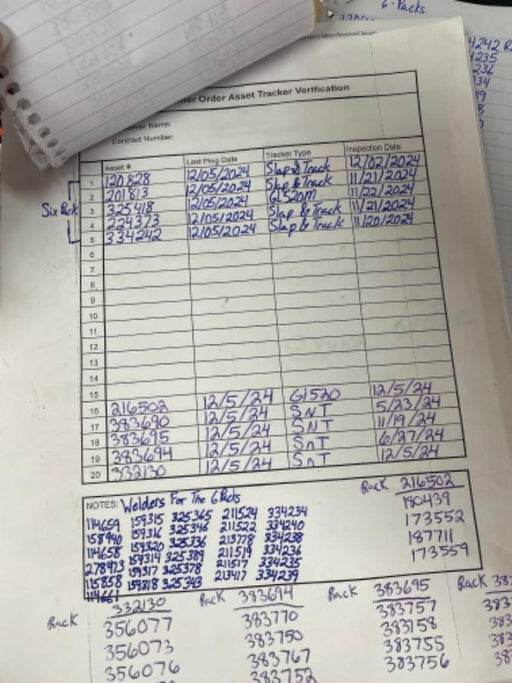 6-Packs
4242
4235
236
234
Order Asset Tracker Verification
Name:
Contract Number:
Asset # Last Ping Date Tracker Type Inspection Date
Six Pack
1 120828 12/05/2024 Slap & Track 12/02/2024
2 201813 12/05/2024 Slap & Track 11/21/2024
3 325418 12/05/2024 GL520M 11/22/2024
4 224373 12/05/2024 Slap & Track 11/21/2024
5 334242 12/05/2024 Slap & Track 11/20/2024
6
7
8
9
10
11
12
13
14
15
16 216502 12/5/24 G1520 12/5/24
17 383690 12/5/24 SNT 5/23/24
18 383695 12/5/24 SNT 11/19/24
19 383694 12/5/24 SnT 6/27/24
20 332130 12/5/24 SnT 12/5/24
NOTES: Welders For The 6 Packs
114659 159315 325365 211524 334234
158940 159316 325346 211522 334240
114658 159320 325336 213778 334238
278473 159314 325389 211519 334236
115858 159317 325378 211517 334235
114661 159318 325343 213417 334239
Rack 216502
190439
173552
187711
173559
Rack 332130
356077
356073
356076
Rack 383694
383770
383750
383767
383752
Rack 383695
383757
383758
383755
383756
Rack 383
383
383
38